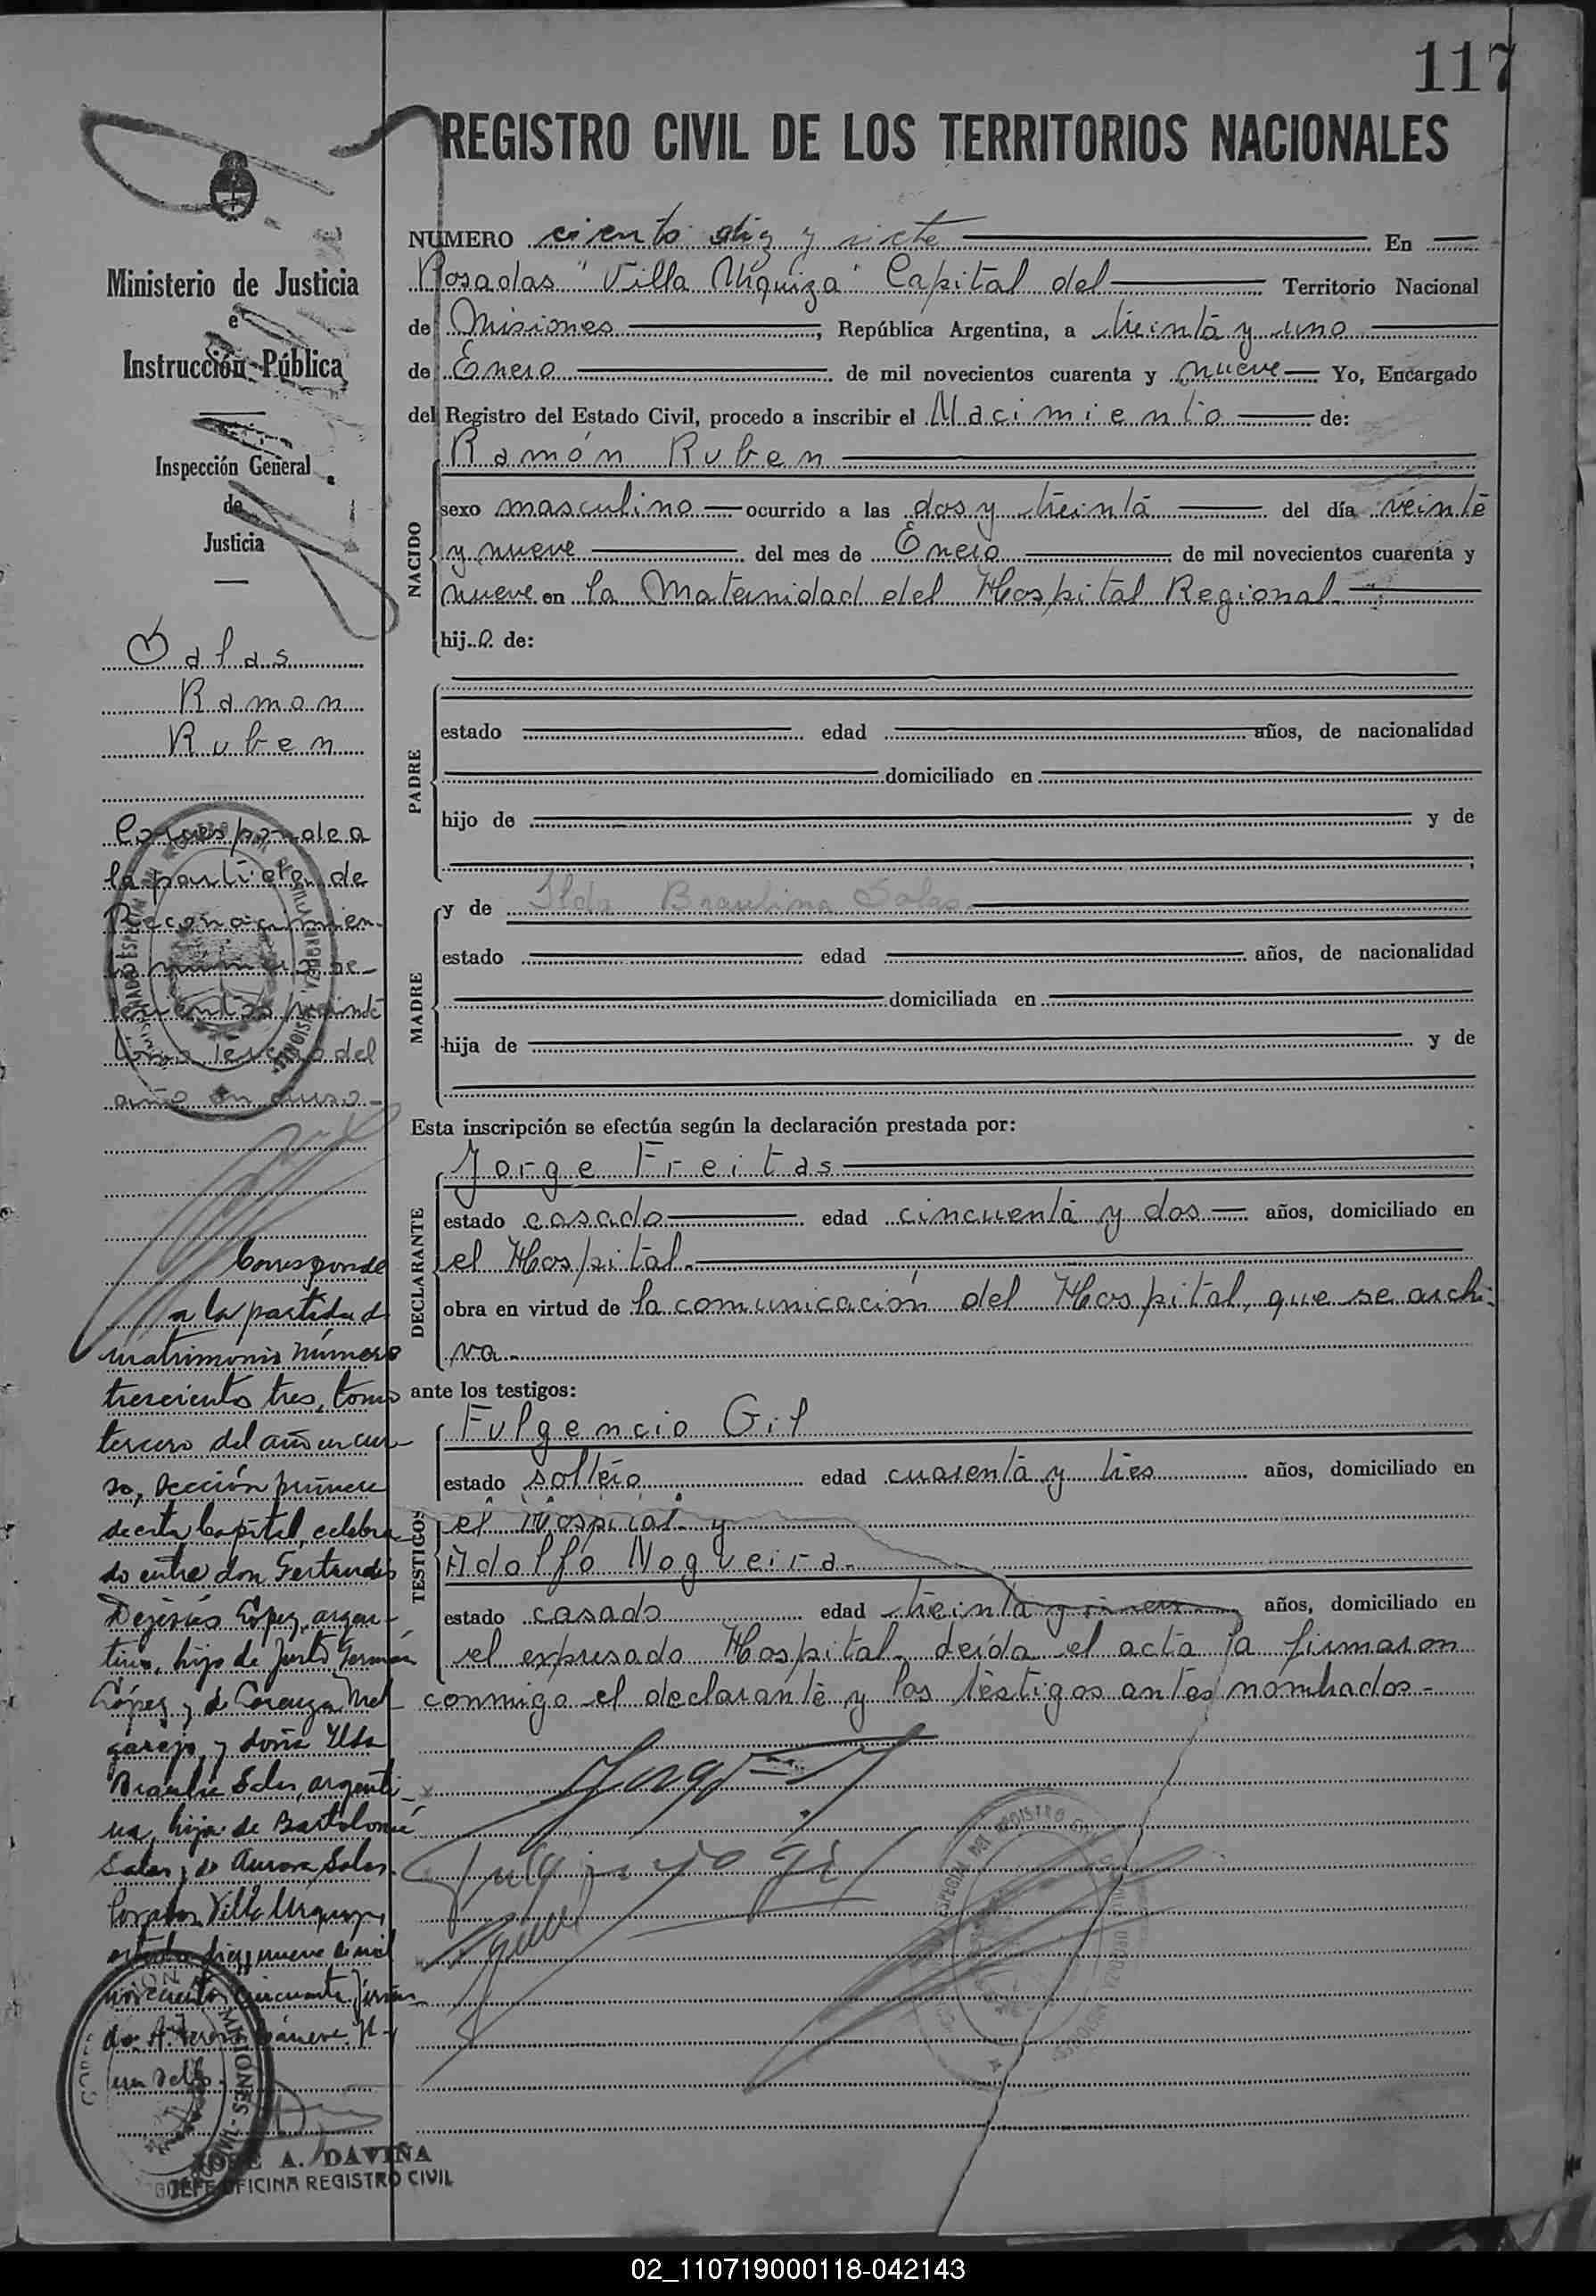 117
REGISTRO CIVIL DE LOS TERRITORIOS NACIONALES
Ministerio de Justicia
e
Instrucción Pública
Inspección General
de
Justicia
Salas
Ramon
Ruben
Corresponde a
la partida de
Reconocimien-
to número se-
tecientos veinte
tomo tercero del
año en curso-
Corresponde
a la partida de
matrimonio número
trescientos tres, tomo
tercero del año en cur-
so, sección primera
de esta Capital, celebra-
do entre don Gertrudis
Dejesús López, argen-
tino, hijo de Justo Germán
López y de Corenza Mel-
garejo, y doña Ilda
Braulia Salas, argenti-
na, hija de Bartolomé
Salas y de Aurora Salas.
Posadas Villa Urquiza,
diez y nueve de mil
novecientos cincuenta. Firma-
do: A.
un sello.
JOSE A. DAVIÑA
JEFE OFICINA REGISTRO CIVIL
NUMERO ciento diez y siete En
Posadas "Villa Urquiza" Capital del Territorio Nacional
de Misiones, República Argentina, a treinta y uno
de Enero de mil novecientos cuarenta y nueve Yo, Encargado
del Registro del Estado Civil, procedo a inscribir el Nacimiento de:
NACIDO
Ramón Ruben
sexo masculino ocurrido a las dos y treinta del día veinte
y nueve del mes de Enero de mil novecientos cuarenta y
nueve en la Maternidad del Hospital Regional
hijo de:
PADRE
estado edad años, de nacionalidad
domiciliado en
hijo de y de
MADRE
y de Ilda Braulina Salas
estado edad años, de nacionalidad
domiciliada en
hija de y de
Esta inscripción se efectúa según la declaración prestada por:
DECLARANTE
Jorge Freitas
estado casado edad cincuenta y dos años, domiciliado en
el Hospital.
obra en virtud de la comunicación del Hospital, que se archi-
va.
ante los testigos:
TESTIGOS
Fulgencio Gil
estado soltero edad cuarenta y tres años, domiciliado en
el Hospital y
Adolfo Nogueira.
estado casado edad treinta y años, domiciliado en
el expresado Hospital. Leída el acta la firmaron
conmigo el declarante y los testigos antes nombrados-
02_110719000118-042143